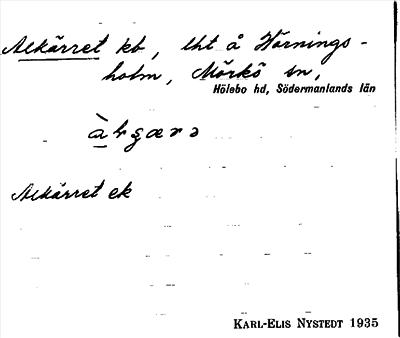 Alkärret kb, lht å Hörnings-
holm, Mörkö sn,
Hölebo hd, Södermanlands län
Alkärret ek
KARL-ELIS NYSTEDT 1935